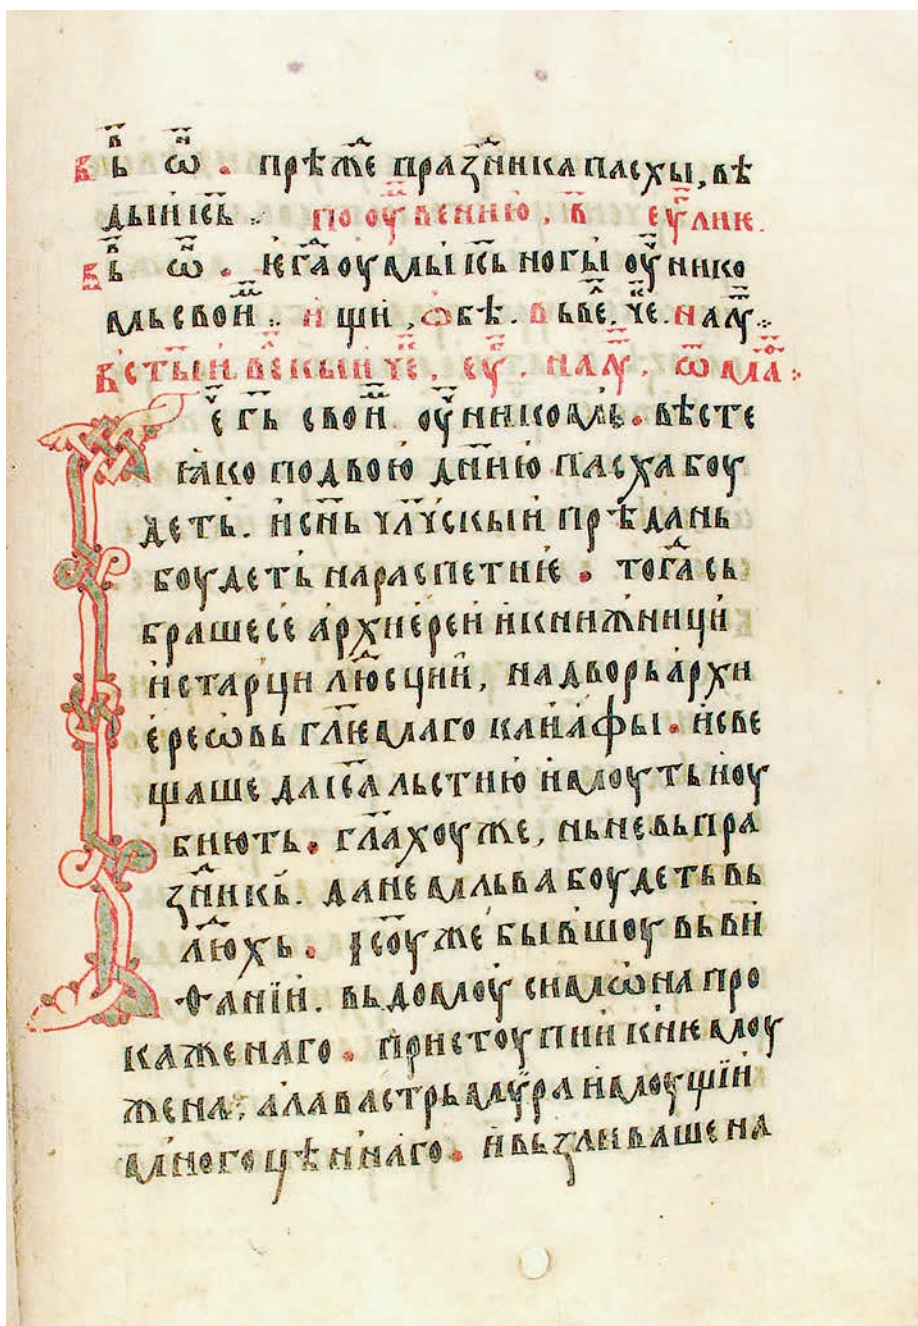 в҃ь ѡ҃ . прѣж҇е праꙁн҇ика пасхы, вѣ
дыи і҃сь . по оумвению, в҃ еуⷢ҇лие.
в҃ь ѡ҃ . ѥгⷣа оумы і҃сь ногы оу҃чнико
мь своиⷨ : ищи , ѡбѣ . въ вел҇. чеⷦ҇. на лтⷬ҇ :
въ ст҃ыи великыи чеⷦ҇ , еуⷢ҇ , на лтⷬ҇ , ѿ маⷴ҇ :
Рече г҃ь своиⷨ оу҃чникомь . вѣсте
ꙗко по двою д҃нию пасха боу
деть . и с҃нь ч҃лчскыи прѣдань
боудеть на распетиѥ . тогⷣа сь
браше се архиереи и книжници
и старци люⷣсции , на дворь архи
ереѡвь г҃лѥмаго каиафы . и све
щаше да і҃са льстию имоуть и оу
биють . г҃лахоу же , нь не вь пра
ꙁⷣникь . да не мльва боудеть вь
люⷣхь . і҃соу же бывшоу вь ви
ѳании . вь домоу симѡна про
каженаго . пристоупи к нѥмоу
жена , алавастрь мѵра имоущи
многоцѣннаго . и вьꙁливаше на